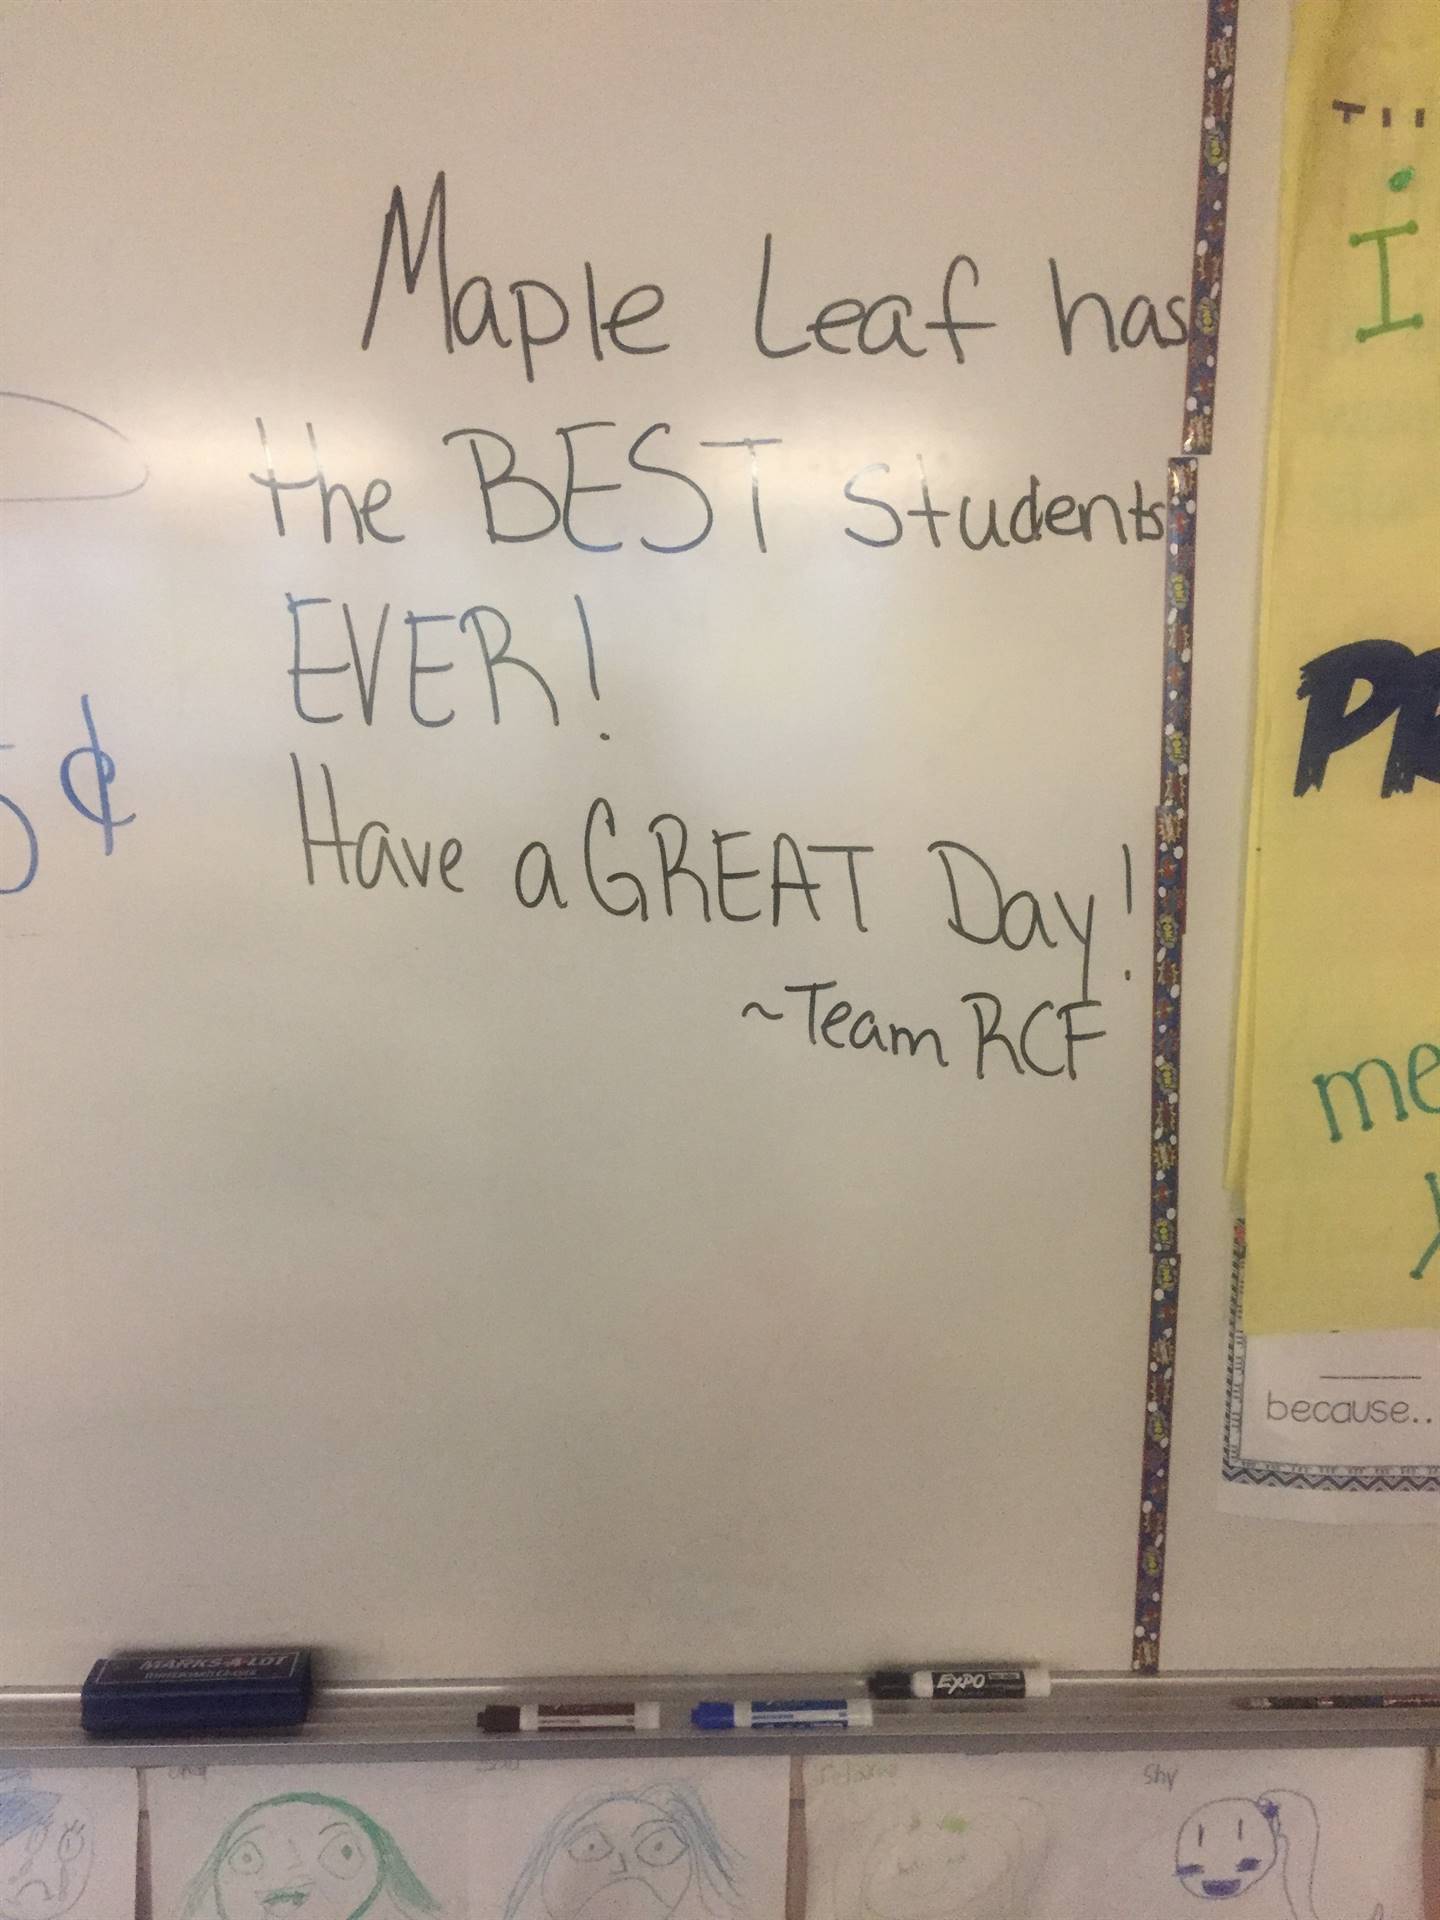 Maple Leaf has
the BEST students
EVER!
Have a GREAT Day!
~Team RCF
¢
I
PR
me
because..
MARKS-A-LOT
EXPO
relaxed
shy